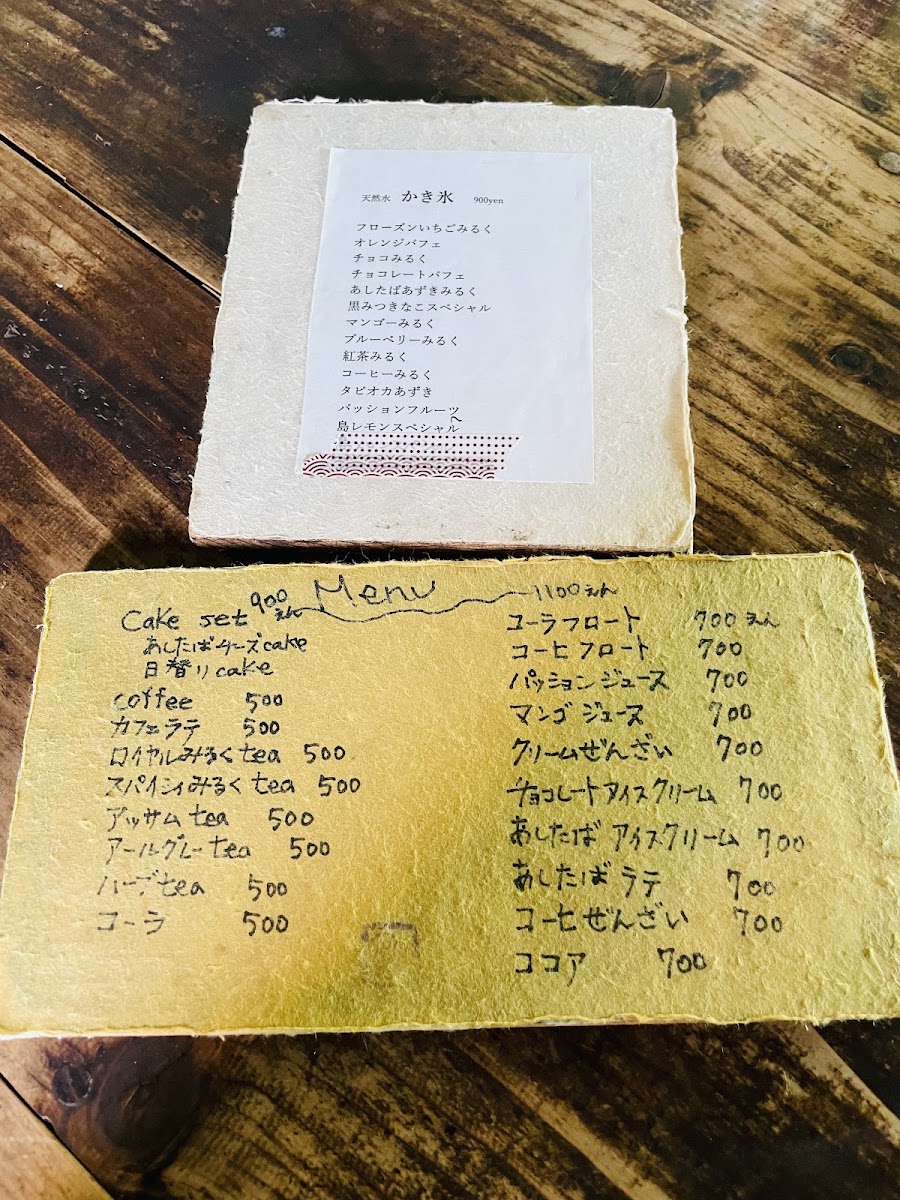 天然水 かき氷 900yen
フローズンいちごみるく
オレンジパフェ
チョコみるく
チョコレートパフェ
あしたばあずきみるく
黒みつきなこスペシャル
マンゴーみるく
ブルーベリーみるく
紅茶みるく
コーヒーみるく
タピオカあずき
パッションフルーツ
島レモンスペシャル
Menu
cake set 900えん 1100えん
あしたばチーズcake
日替りcake
coffee 500
カフェラテ 500
ロイヤルみるくtea 500
スパイシィみるくtea 500
アッサムtea 500
アールグレーtea 500
ハーブtea 500
コーラ 500
コーラフロート 700えん
コーヒフロート 700
パッションジュース 700
マンゴジュース 700
クリームぜんざい 700
チョコレートアイスクリーム 700
あしたばアイスクリーム 700
あしたばラテ 700
コーヒぜんざい 700
ココア 700